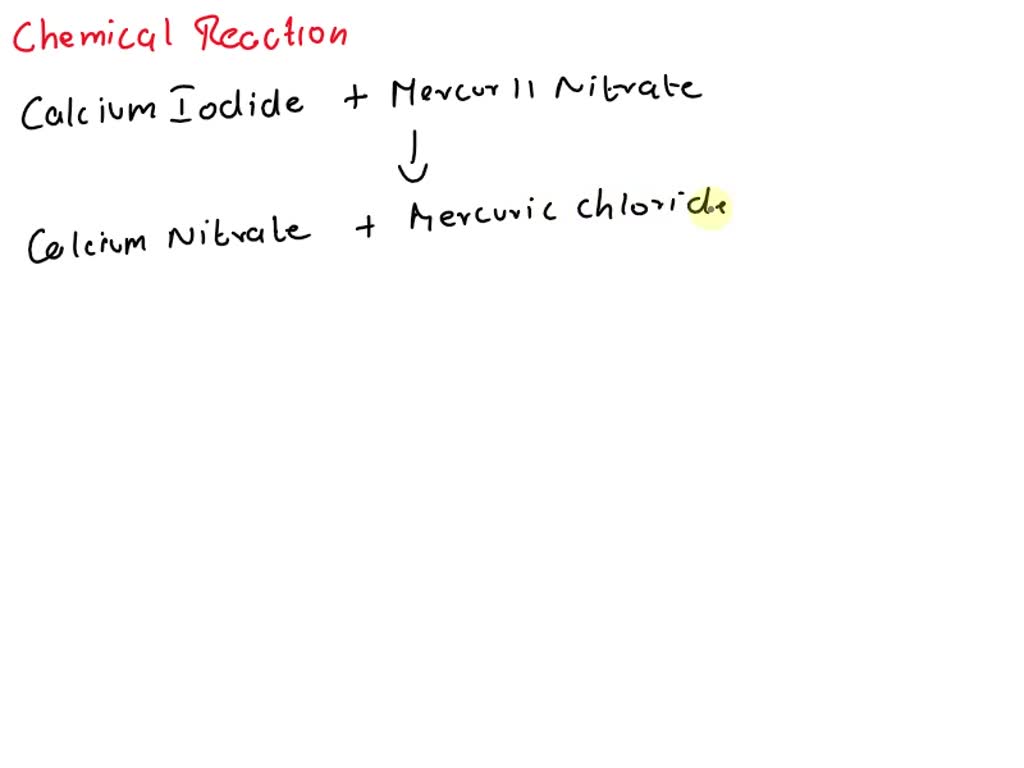 Chemical Reaction
Calcium Iodide + Mercur II Nitrate
↓
Calcium Nitrate + Mercuric chloride